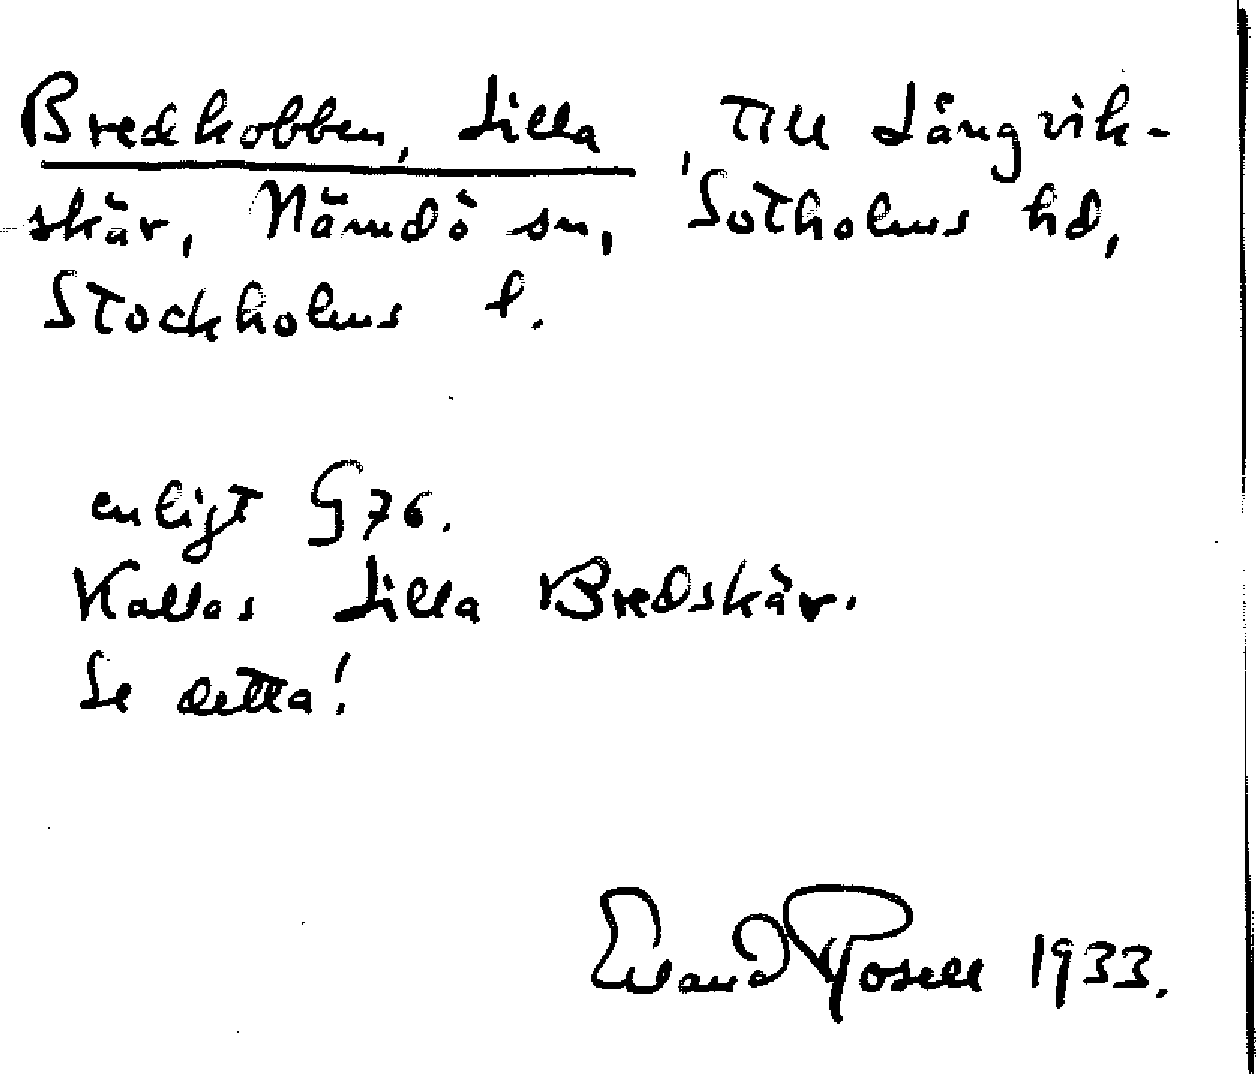 Bredkobben, Lilla, Till Långvik-
skär, Nämdö sn, Sotholms hd,
Stockholms l.
enligt G76.
Kallas Lilla Bredskär.
Se detta!
Erland Rosell 1933.